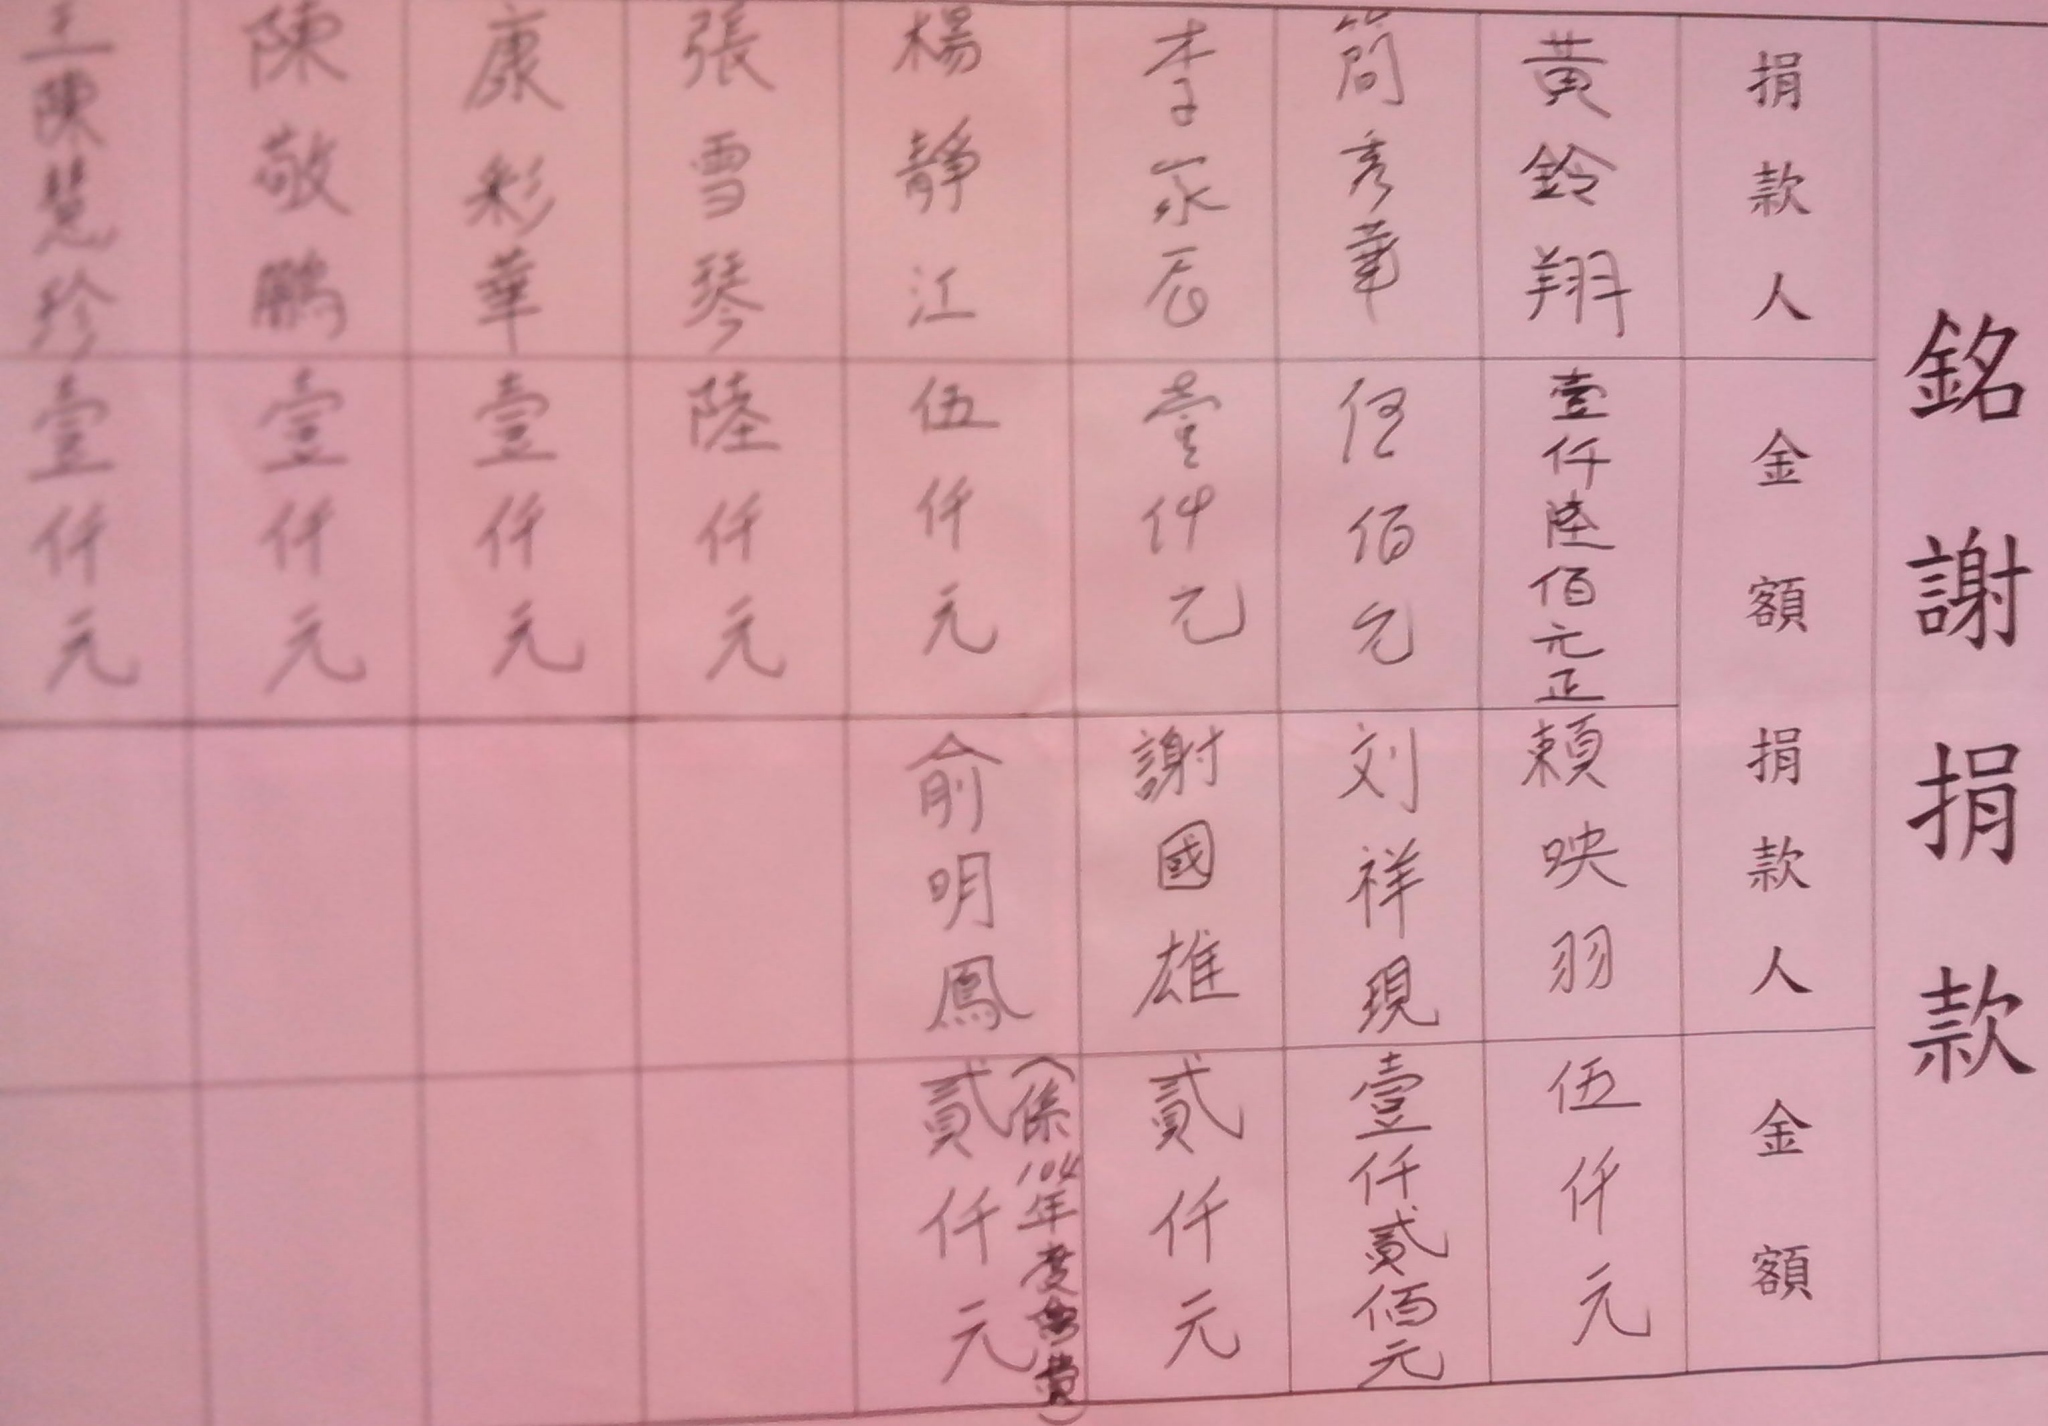 銘謝捐款
捐款人
金額
捐款人
金額
黃鈴翔
壹仟陸佰元正
賴映羽
伍仟元
簡秀華
伍佰元
刘祥現
壹仟貳佰元
李家辰
壹仟元
謝國雄
貳仟元
楊靜江
伍仟元
俞明鳳
(係104年度會費)
貳仟元
張雪琴
陸仟元
康彩華
壹仟元
陳敬鵬
壹仟元
王陳慧珍
壹仟元